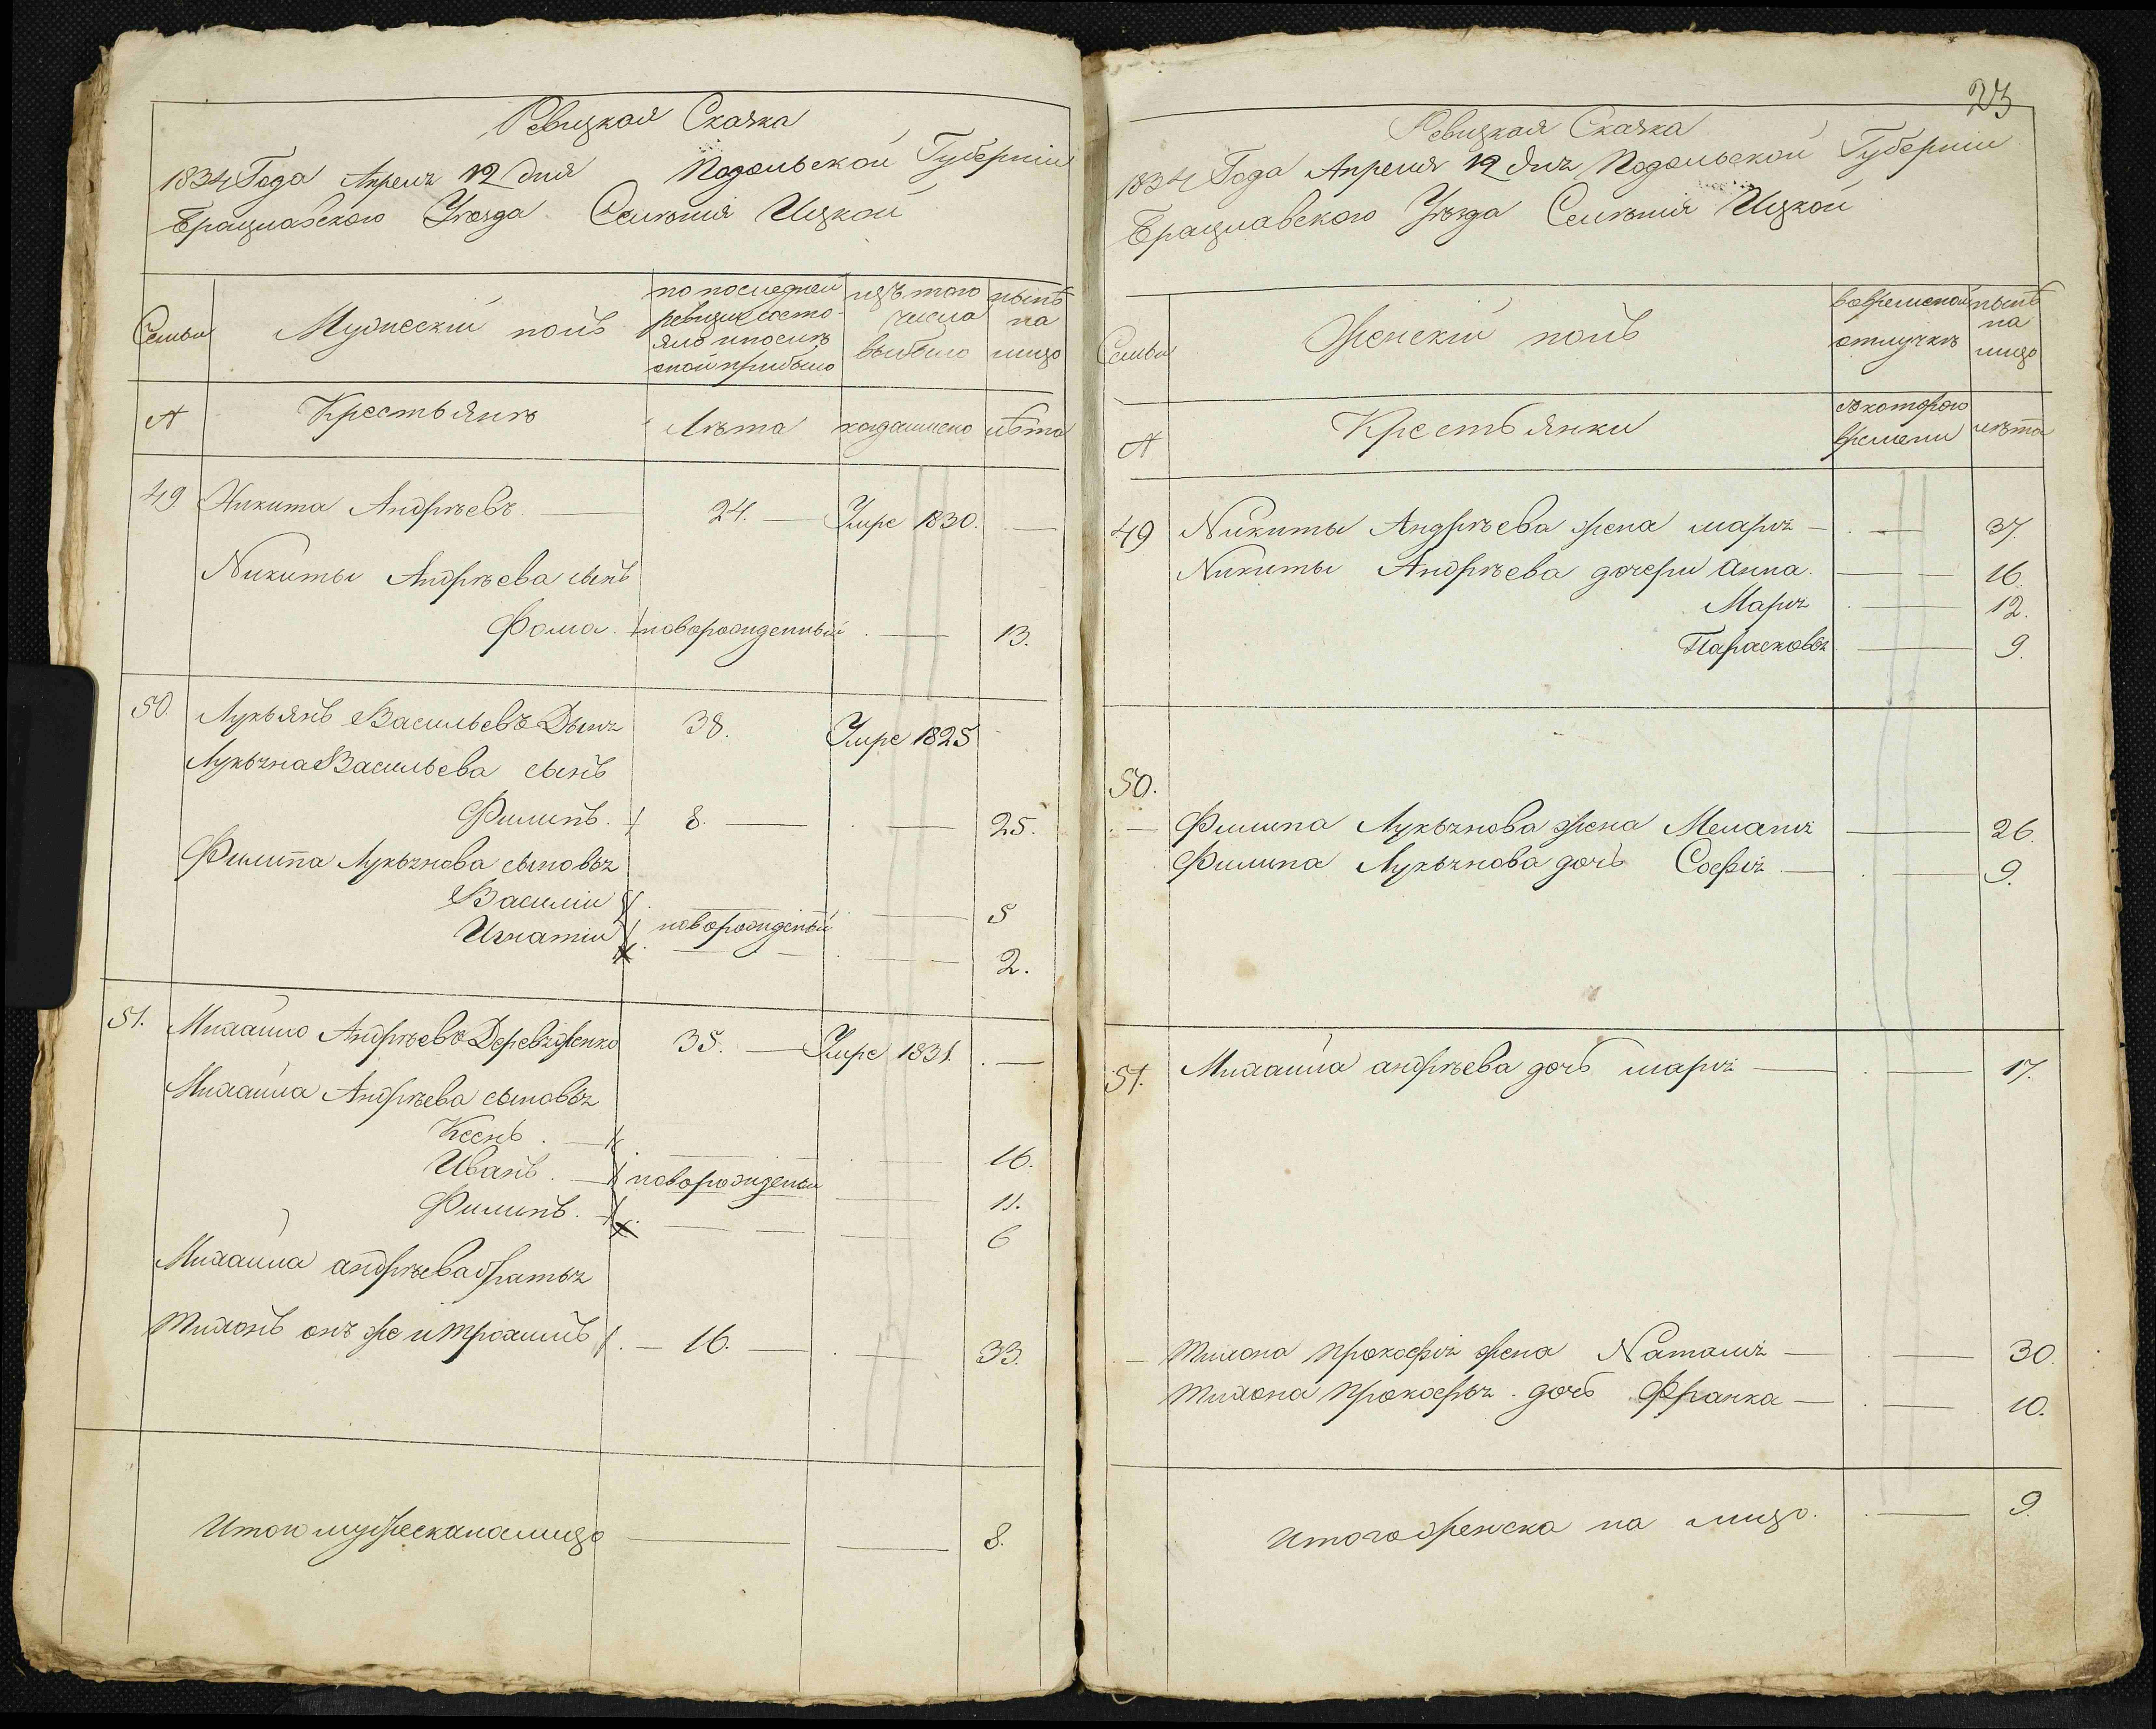 Ревизкая Сказка
1834 Года Апреля 12 дня Подольской Губернiи
Брацлавского Уѣзда Селѣнiя Ицкой
Семьи
Мужескiй полъ
по последней ревизiи состояло и посиѣ оной прибыло
изъ того числа выбыло
нынѣ на лицо
№
Крестьянѣ
Лѣта
когда имено
лѣта
49 Никита Андрѣевъ — 24. — Умре 1830. —
Никиты Андрѣева сынъ
Фома. новорожденный — 13.
50. Лукьянъ Васильевъ 38. Умре 1825
Лукьяна Васильева сынъ
Филипъ. 8. — — 25.
Филипа Лукьянова сыновья
Василiи — 5
Игнатiи новорожденый — 2.
51. Михайло Андрѣевъ 35. — Умре 1831. —
Михайла Андрѣева сыновья
Ксенъ. — 16.
Иванъ. — новорожденыи — 11.
Филипъ. — — 6
Михайла андрѣева братья
Тихонъ онъ же и Трохимъ — 16. — — 33.
Итого мужеска на лицо — — 8.
23
Ревизкая Сказка
1834 Года Апреля 12 дня Подольской Губернiи
Брацлавского Уѣзда Селѣнiя Ицкой
Семьи
Женскiй полъ
во временой отлучкѣ
нынѣ на лицо
№
Крестьянки
съ которого времени
лѣта
49 Никиты Андрѣева жена марiя — — 37.
Никиты Андрѣева дочери Анна. — — 16.
Марiя — 12.
Парасковья — 9.
50.
— Филипа Лукьянова жена Меланiя — 26.
Филипа Лукьянова дочь Софiя — — 9.
51. Михайла андрѣева дочь марiя — — 17.
— Тихона Прокофiя жена Наталiя — — 30.
Тихона Прокофья дочь Франка — — 10.
Итого женска на лицо. — 9.